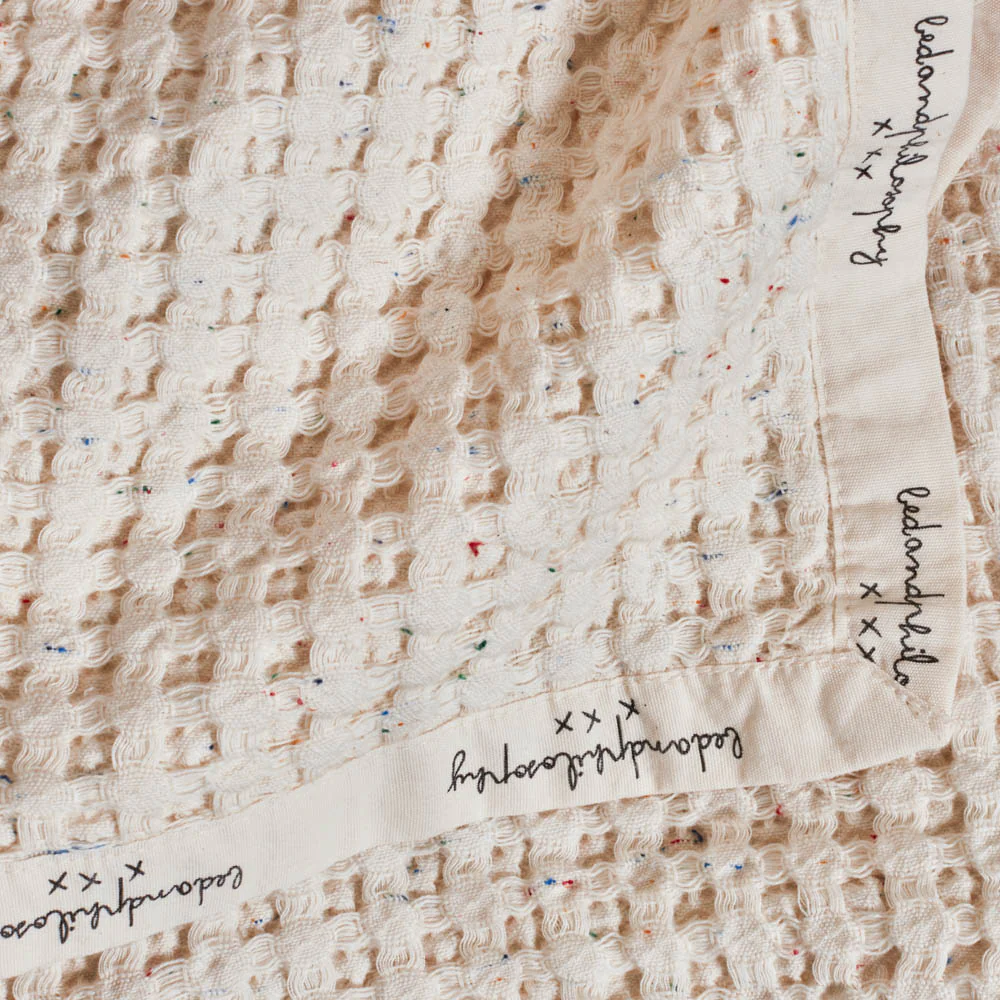 bedandphilosophy
x x x
bedandphilo
x x x
bedandphilosophy
x x x
bedandphiloso
x x x